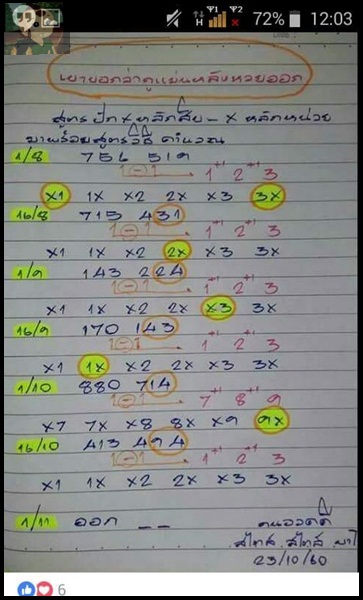 72% 12:03
เขายอกว่าดูแม่นหลังหวยออก
สูตร ปัก X หลักสิบ - X หลักหน่วย
มาพร้อมสูตรวิธี คำนวณ
1/8 756 519
1-1 1 +1 2 +1 3
X1 1X X2 2X X3 3X
16/8 715 431
1-1 1 +1 2 +1 3
X1 1X X2 2X X3 3X
1/9 143 224
1-1 1 +1 2 +1 3
X1 1X X2 2X X3 3X
16/9 170 143
1-1 1 +1 2 +1 3
X1 1X X2 2X X3 3X
1/10 880 714
1-1 7 +1 8 +1 9
X7 7X X8 8X X9 9X
16/10 413 494
1-1 1 +1 2 +1 3
X1 1X X2 2X X3 3X
1/11 ออก _ _
คนอวดดี
สไทส์ สไทส์
23/10/60
6